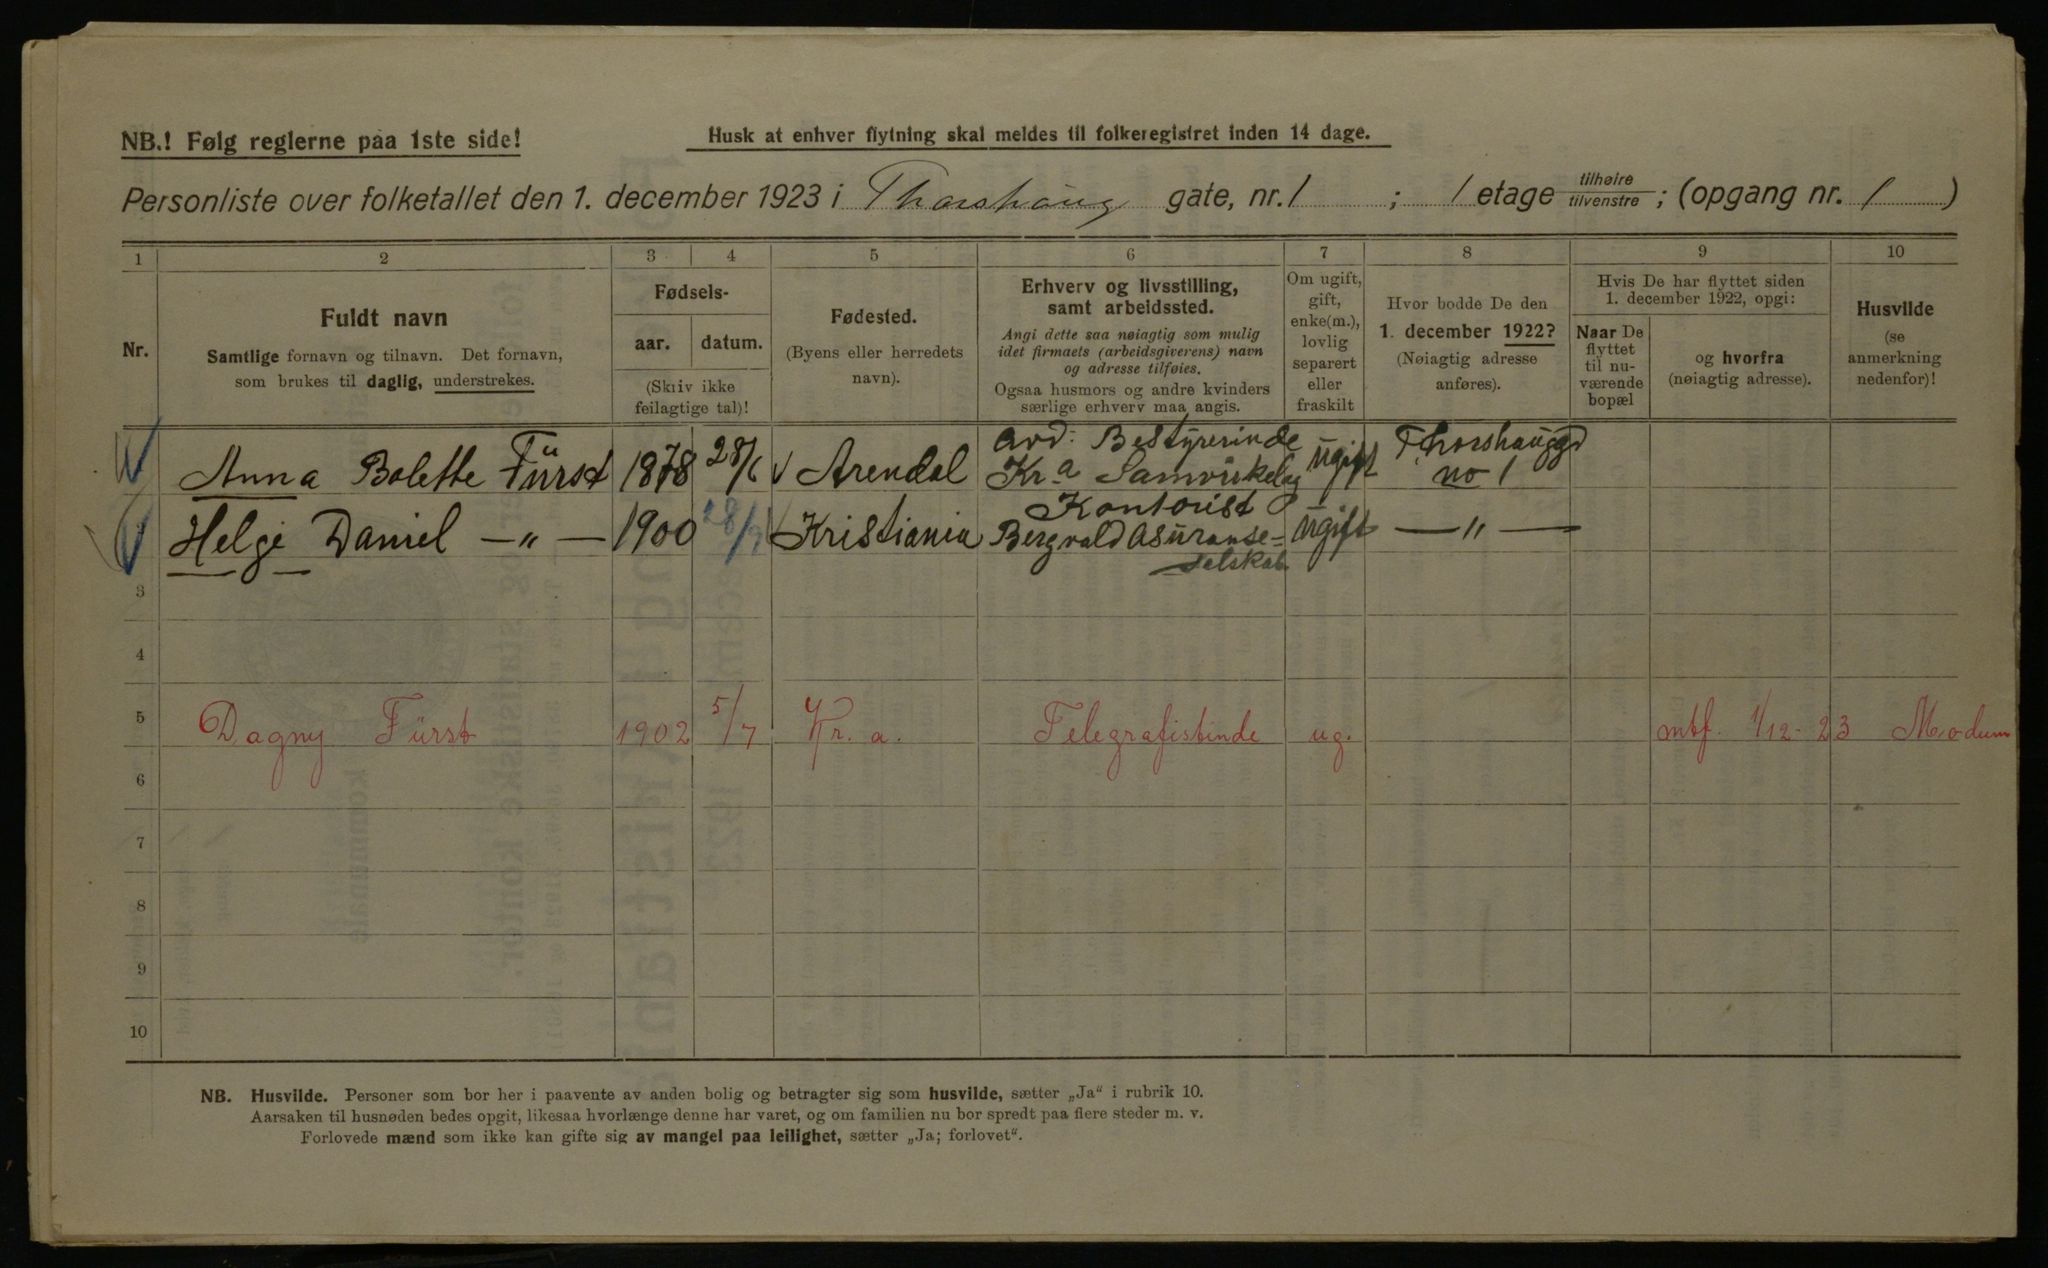 NB.! Følg reglerne paa 1ste side!
Husk at enhver flytning skal meldes til folkeregistret inden 14 dage.
Personliste over folketallet den 1. december 1923 i Thorshaug gate, nr. 1 ; 1 etage tilhøire tilvenstre ; (opgang nr. 1 )
1 2 3 4 5 6 7 8 9 10
Nr.
Fuldt navn
Samtlige fornavn og tilnavn. Det fornavn,
som brukes til daglig, understrekes.
Fødsels-
aar. datum.
(Skriv ikke
feilagtige tal)!
Fødested.
(Byens eller herredets
navn).
Erhverv og livsstilling,
samt arbeidssted.
Angi dette saa nøiagtig som mulig
idet firmaets (arbeidsgiverens) navn
og adresse tilføies.
Ogsaa husmors og andre kvinders
særlige erhverv maa angis.
Om ugift,
gift,
enke(m.),
lovlig
separert
eller
fraskilt
Hvor bodde De den
1. december 1922?
(Nøiagtig adresse
anføres).
Hvis De har flyttet siden
1. december 1922, opgi:
Naar De
flyttet
til nu-
værende
bopæl
og hvorfra
(nøiagtig adresse).
Husvilde
(se
anmerkning
nedenfor)!
Anna Bolette Fürst 1878 28/6 Arendal avd: Bestyrerinde Kr.a Samvirkelag ugift Thorshauggd no 1
Helge Daniel —„— 1900 Kristiania Kontorist Bergvald Asuranse-selskab. ugift —„—
3
4
5 Dagny Fürst 1902 5/7 Kr. a. Telegrafistinde ug. mtf. 1/12-23 Modum
6
7
8
9
10
NB. Husvilde. Personer som bor her i paavente av anden bolig og betragter sig som husvilde, sætter „Ja“ i rubrik 10.
Aarsaken til husnøden bedes opgit, likesaa hvorlænge denne har varet, og om familien nu bor spredt paa flere steder m. v.
Forlovede mænd som ikke kan gifte sig av mangel paa leilighet, sætter „Ja; forlovet“.